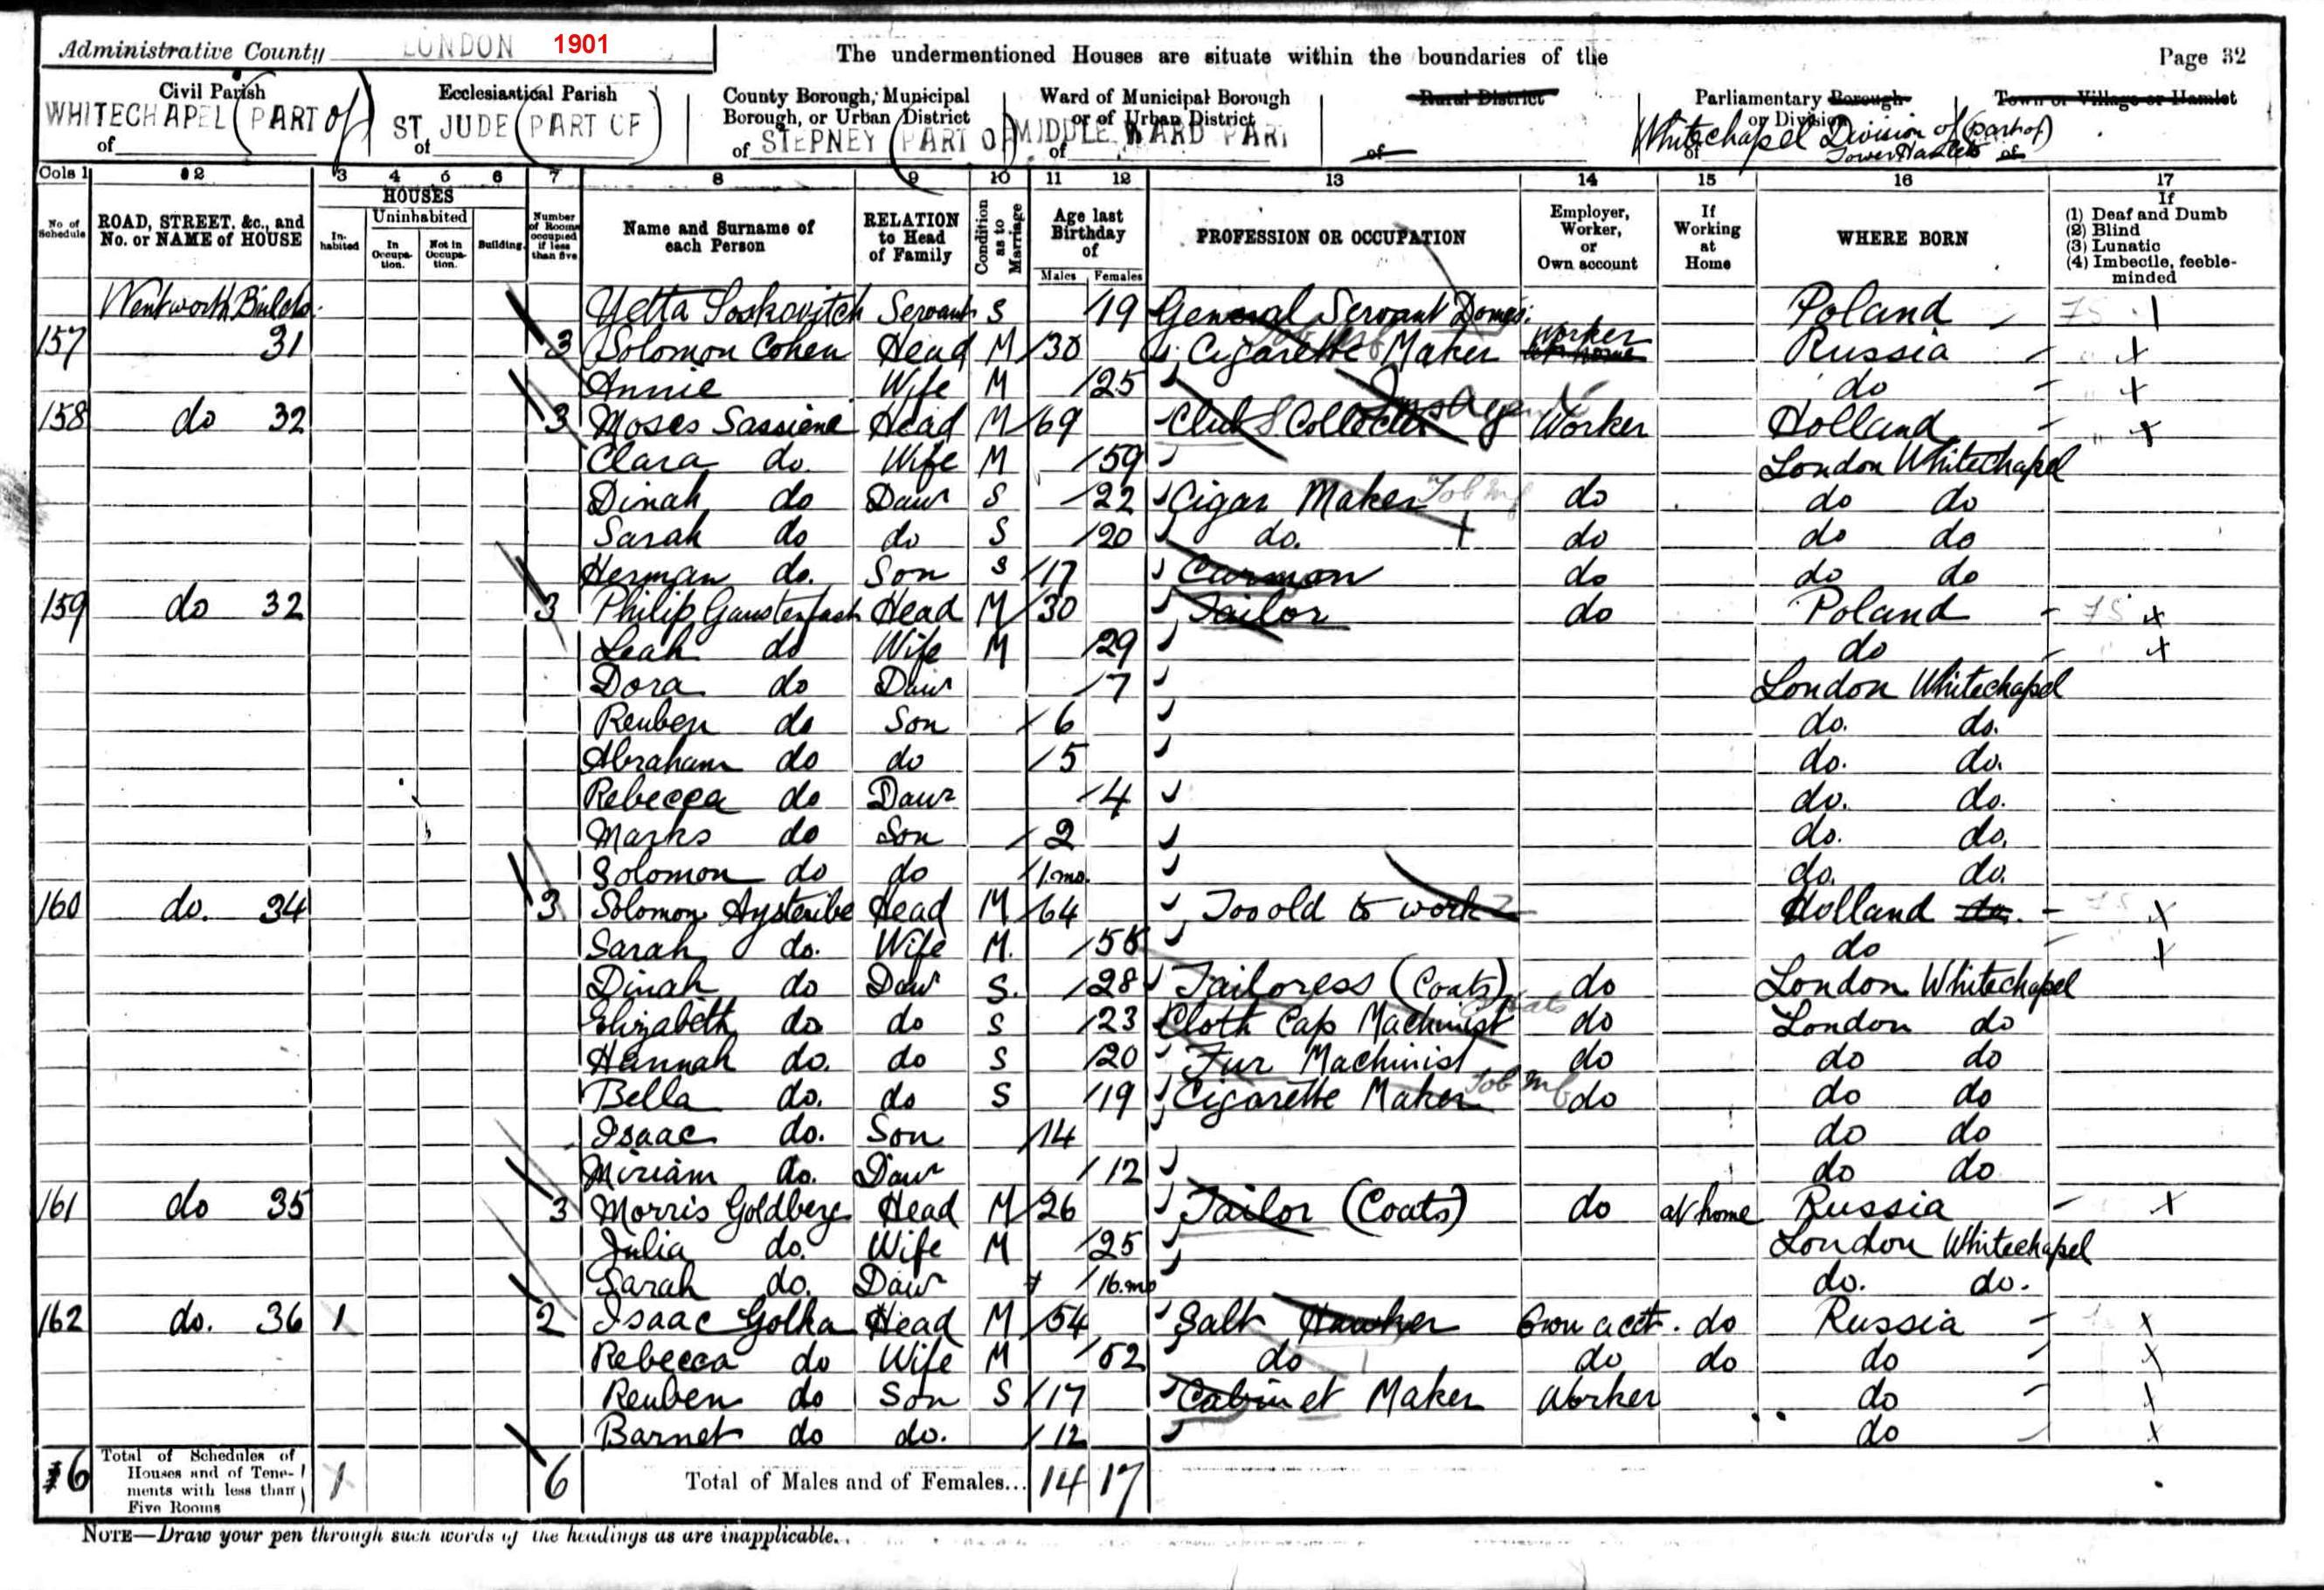 Administrative County LONDON 1901 The undermentioned Houses are situate within the boundaries of the Page 32
Civil Parish Ecclesiastical Parish County Borough, Municipal Borough, or Urban District Ward of Municipal Borough or of Urban District Rural District Parliamentary Borough or Division Town or Village or Hamlet
of WHITECHAPEL (PART of) of ST JUDE (PART OF) of STEPNEY (PART OF) of MIDDLE WARD PART of of Whitechapel Division of (part of) Tower Hamlets of
Cols 1 2 3 4 5 6 7 8 9 10 11 12 13 14 15 16 17
No of Schedule ROAD, STREET, &c., and No. or NAME of HOUSE HOUSES Inhabited Uninhabited In Occupation. Not in Occupation. Building Number of Rooms occupied if less than five Name and Surname of each Person RELATION to Head of Family Condition as to Marriage Age last Birthday of Males Females PROFESSION OR OCCUPATION Employer, Worker, or Own account If Working at Home WHERE BORN If (1) Deaf and Dumb (2) Blind (3) Lunatic (4) Imbecile, feeble-minded
Wentworth Builds. Yetta Servant S 19 General Servant Domes: Poland
157 31 3 Solomon Cohen Head M 30 Cigarette Maker Worker at home Russia
Annie Wife M 25 do
158 do 32 3 Moses Sassiene Head M 69 Club Collector Worker Holland
Clara do. Wife M 59 London Whitechapel
Dinah do Daur S 22 Cigar Maker Tob Mf do do do
Sarah do do S 20 do. do do do
Herman do. Son S 17 Carman do do do
159 do 32 3 Philip Head M 30 Tailor do Poland
Leah do Wife M 29 do
Dora do Daur 7 London Whitechapel
Reuben do Son 6 do. do.
Abraham do do 5 do. do.
Rebecca do Daur 4 do. do.
Marks do Son 2 do. do.
Solomon do do 1 mo. do. do.
160 do. 34 3 Solomon Head M 64 Too old to work Holland do.
Sarah do. Wife M. 58 do
Dinah do Daur S. 28 Tailoress (Coats) do London Whitechapel
Elizabeth do do S 23 Cloth Cap Machinist do London do
Hannah do. do S 20 Fur Machinist do do do
Bella do. do S 19 Cigarette Maker Tob Mf do do do
Isaac do. Son 14 do do
Miriam do. Daur 12 do do
161 do 35 3 Morris Goldberg Head M 26 Tailor (Coats) do at home Russia
Julia do. Wife M 25 London Whitechapel
Sarah do. Daur 16 mo do. do.
162 do. 36 1 2 Isaac Golka Head M 54 Salt Hawker Own acct. do Russia
Rebecca do Wife M 52 do do do do
Reuben do Son S 17 Cabinet Maker Worker do
Barnet do do. 12 do
6 Total of Schedules of Houses and of Tenements with less than Five Rooms 1 6 Total of Males and of Females... 14 17
NOTE—Draw your pen through such words of the headings as are inapplicable.